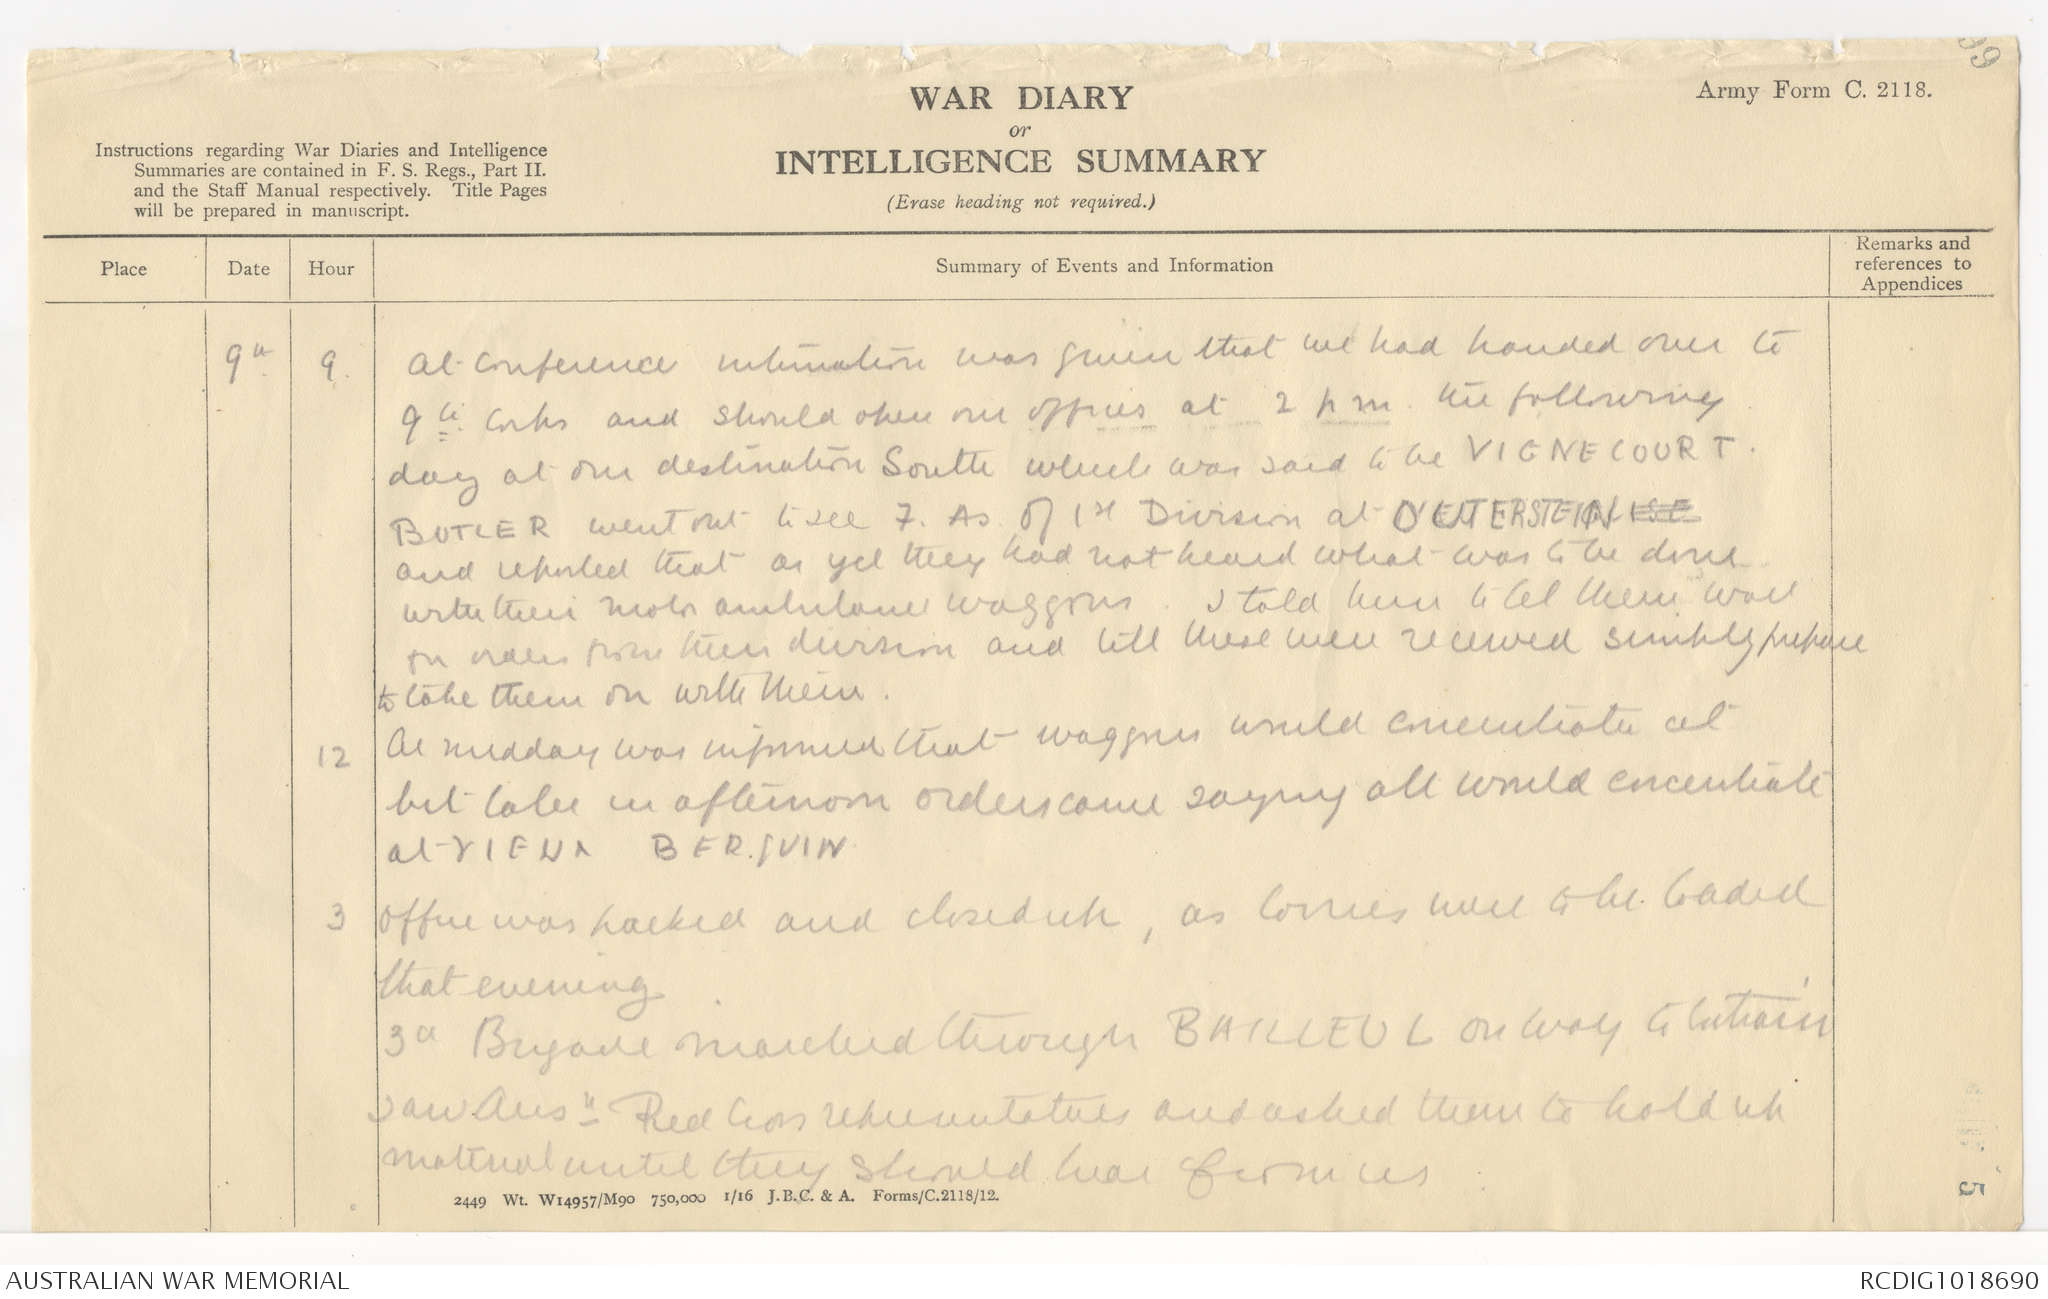 99
Army Form C. 2118.
WAR DIARY
or
INTELLIGENCE SUMMARY
(Erase heading not required.)
Instructions regarding War Diaries and Intelligence
Summaries are contained in F. S. Regs., Part II.
and the Staff Manual respectively. Title Pages
will be prepared in manuscript.
Place Date Hour Summary of Events and Information Remarks and
references to
Appendices
9th 9. At conference intimation was given that we had handed over to
9th Corps and should open our offices at 2 pm the following
day at our destination South which was said to be VIGNECOURT.
BUTLER went out to see F. As of 1st Division at OUTERSTEIN
and reported that as yet they had not heard what was to be done
with their motor ambulance waggons. I told him to let them wait
on orders from their division and till these were received simply prepare
to take them on with them.
12 At midday was informed that waggons would concentrate at
but later in afternoon orders came saying all would concentrate
at VIEUX BERQUIN
3 Office was packed and closed up, as lorries were to be loaded
that evening
3rd Brigade marched through BAILLEUL on way to entrain
saw Aus'n Red Cross representatives and asked them to hold up
material until they should hear from us.
2449 Wt. W14957/M90 750,000 1/16 J.B.C. & A. Forms/C.2118/12.
AUSTRALIAN WAR MEMORIAL
RCDIG1018690